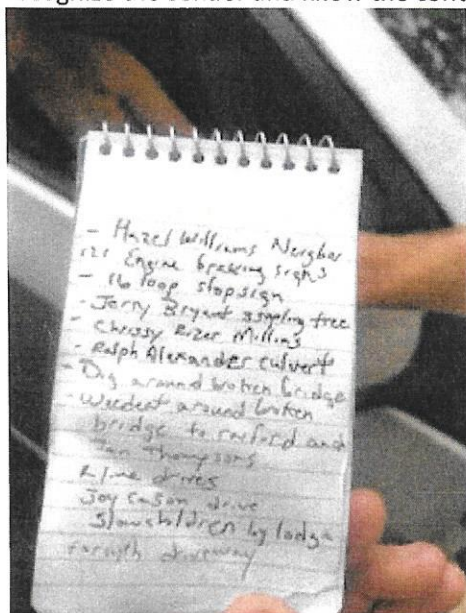 - Hazel Williams Neighbor
121 Engine breaking signs
- 16 loop stopsign
- Jerry Bryant tree
- Chrissy Rizer
- Ralph Alexander culvert
- Dig around broken bridge
- around broken
bridge to and
Jan Thompsons
drives
Joy Cason drive
Slow children by lodge
Forsyth driveway